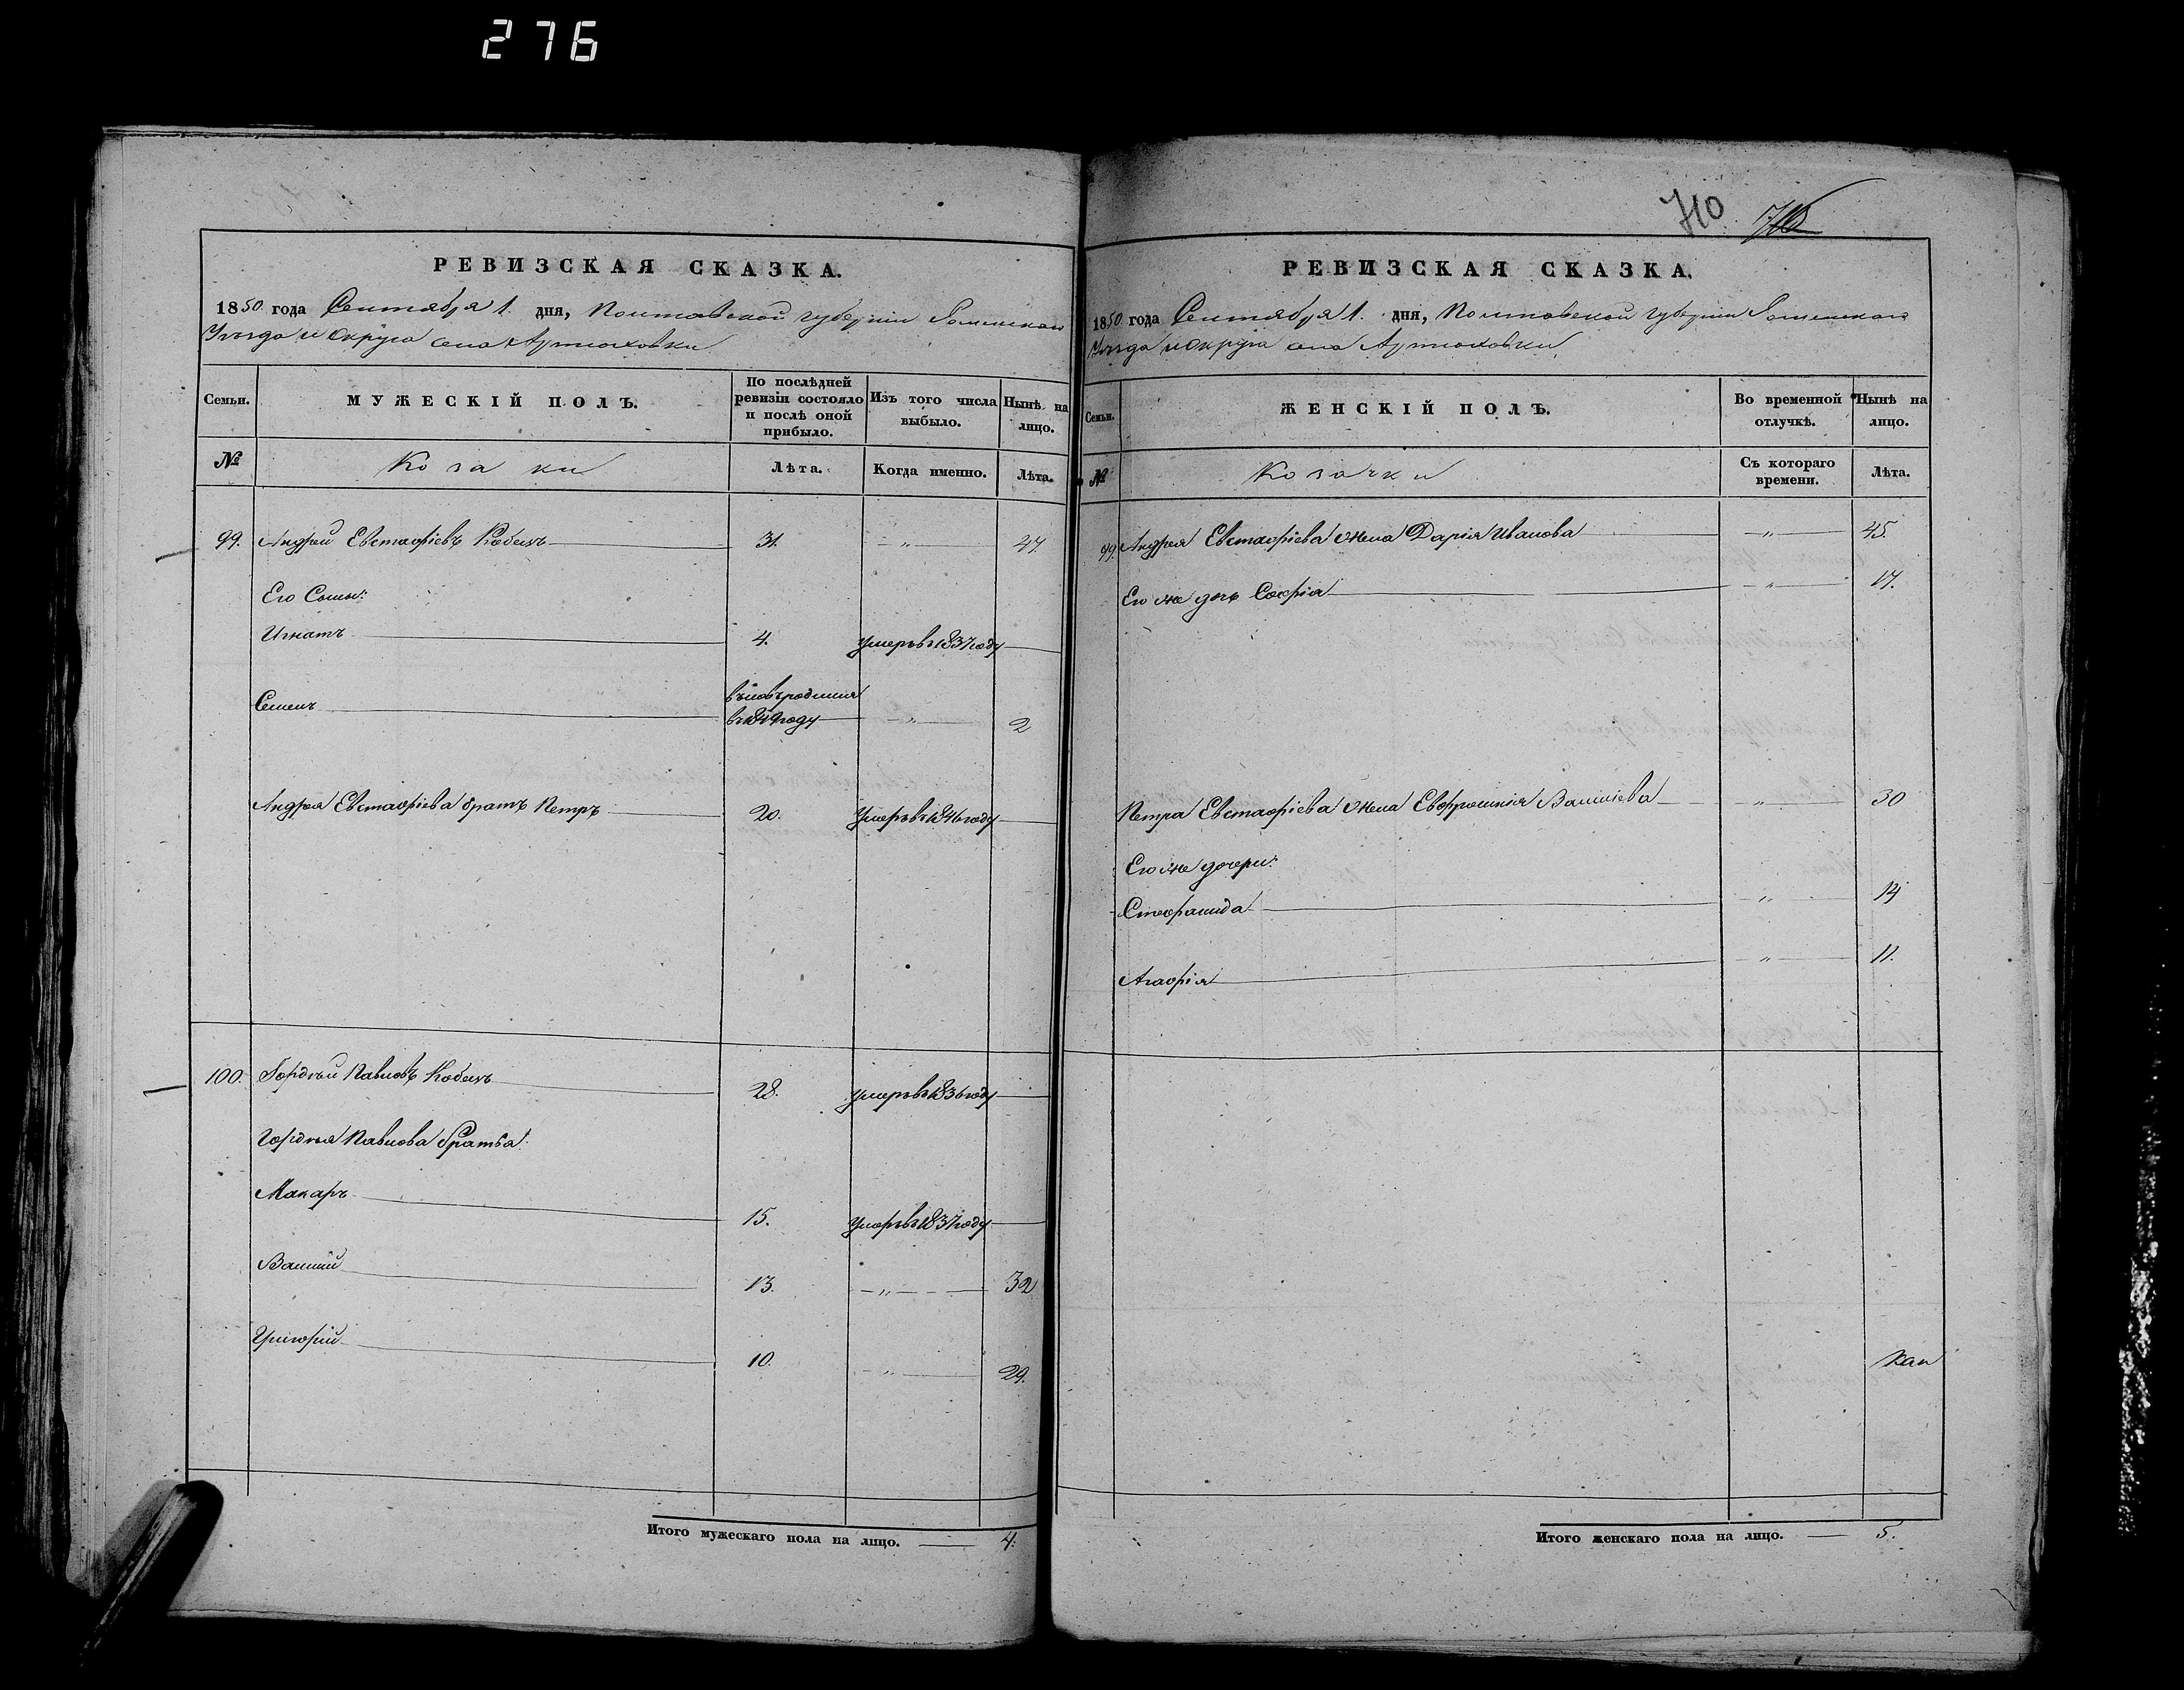 276
710.
РЕВИЗСКАЯ СКАЗКА.
1850 года Сентября 1. дня, Полтавской губерніи Роменскаго
Уезда и Округа села Артюховки
Семьи.
МУЖЕСКІЙ ПОЛЪ.
По послѣдней ревизіи состояло и послѣ оной прибыло.
Изъ того числа выбыло.
Нынѣ на лицо.
№
Козаки
Лѣта.
Когда именно.
Лѣта.
99. Андрей Евстафіевъ Кобецъ 31. — „ — 47
Его Сыны:
Игнатъ 4. умеръ въ 1837 году
Семенъ
въ 1849 году — „ — 2
Андрея Евстафіева братъ Петръ 20. Умеръ въ 1846 году
100. Гордѣй Павловъ Кобецъ 28. умеръ въ 1836 году
Гордѣя Павлова братья:
Макаръ 15. умеръ въ 1837 году
Василій 13. — „ — 32
Григорій 10. — „ — 29.
Итого мужескаго пола на лицо. — 4.
РЕВИЗСКАЯ СКАЗКА.
1850 года Сентября 1. дня, Полтавской губерніи Роменскаго
Уезда и Округа села Артюховки
Семьи.
ЖЕНСКІЙ ПОЛЪ.
Во временной отлучкѣ.
Нынѣ на лицо.
№
Козачки
Съ котораго времени.
Лѣта.
99. Андрея Евстафіева жена Дарія Иванова — „ — 45.
Его же дочь Софія — „ — 17.
Петра Евстафіева жена Евфросинія Василіева — „ — 30
Его же дочери:
Стефанида — „ — 14
Агафія — „ — 11.
Итого женскаго пола на лицо. — 5.